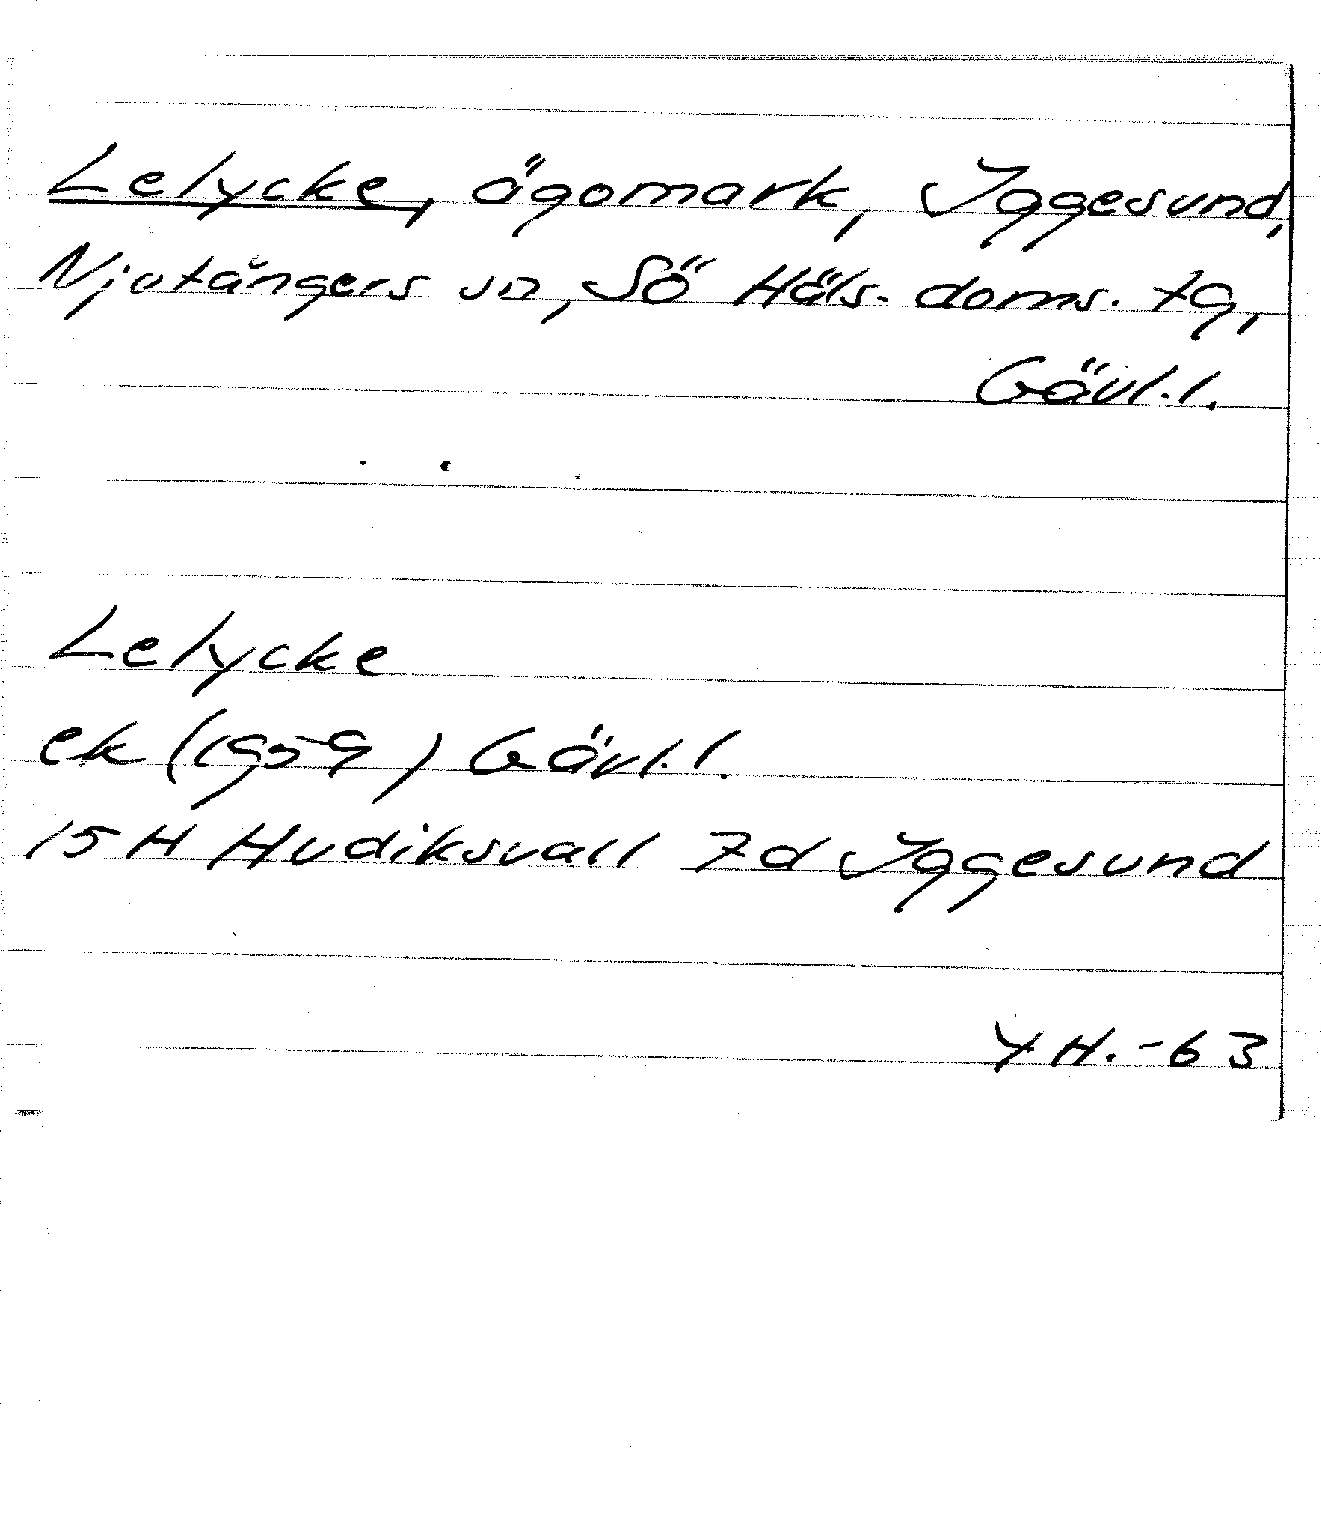 Lelycke, ägomark, Iggesund,
Njutångers sn, Sö Häls. doms. tg,
Gävl.l.
Lelycke
ek (1959) Gävl.l.
15H Hudiksvall 7d Iggesund
YH.-63